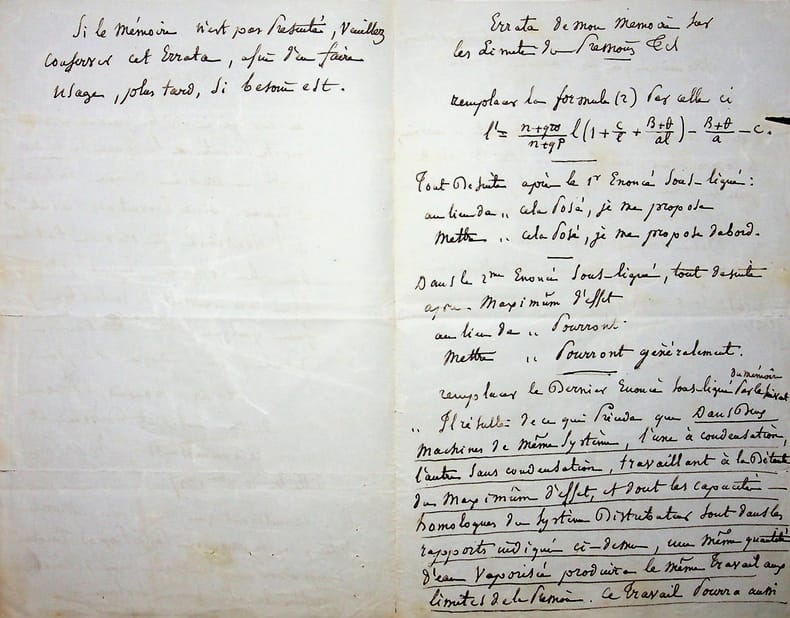 Si le Mémoire n'est pas Presenté, Veuillez
conserver cet Errata, afin d'en faire
usage, plus tard, si besoin est.
Errata de mon Memoire sur
les Limites de Pression &cs
remplacer la formule (2) Par celle ci
l' = n+qω/n+qP l(1 + c/l + B+θ/al) – B+θ/a – c.
Tout De suite après le 1er Enoncé Sous-ligné :
au lieu de „ cela Posé, je me propose
Mettre „ cela Posé, je me propose dabord.
Dans le 2me Enoncé Sous-ligné, tout de suite
après Maximum d'effet
au lieu de „ Pourront
Mettre „ Pourront généralement.
du mémoire
remplacer le Dernier Enoncé sous-ligné Par le suivant
„ Il résulte de ce qui Précede que Dans Deux
Machines de même Système, l'une à condensation,
l'autre sans condensation, travaillant à la Détente
du Maximum d'effet, et dont les capacités
homologues du système Distributeur sont dans les
rapports indiqués ci-dessus, une même quantité
d'eau Vaporisée produira le même Travail aux
limites de la Pression. Ce Travail Pourra aussi